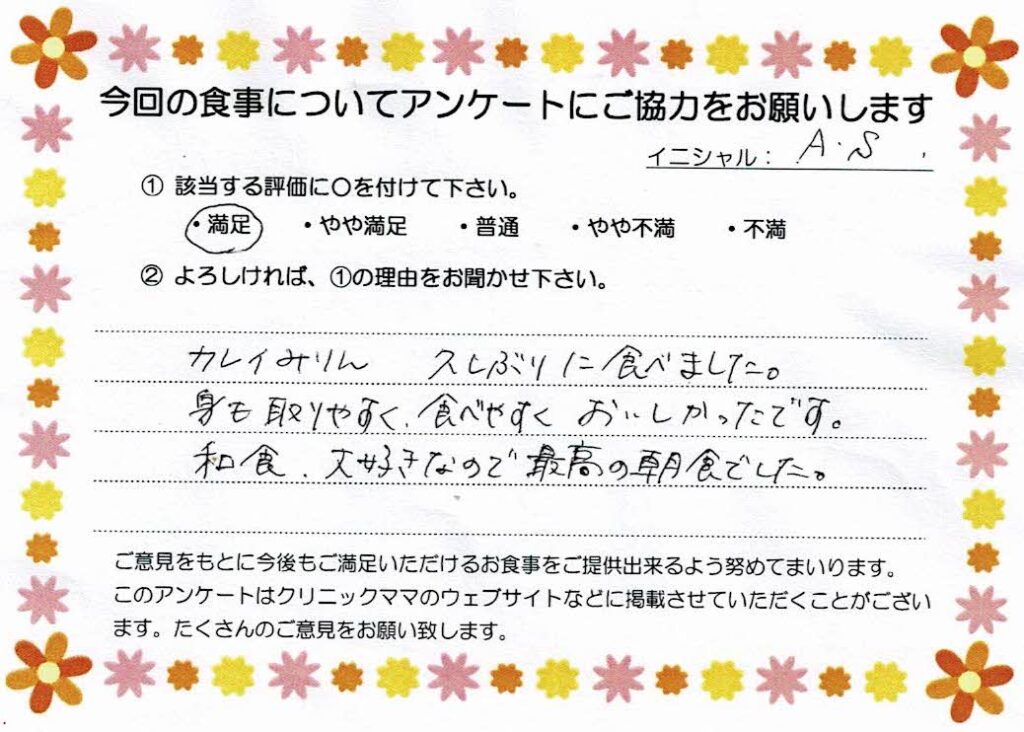 今回の食事についてアンケートにご協力をお願いします
イニシャル： A・S
① 該当する評価に〇を付けて下さい。
・満足 ・やや満足 ・普通 ・やや不満 ・不満
② よろしければ、①の理由をお聞かせ下さい。
カレイみりん 久しぶりに食べました。
身も取りやすく、食べやすく おいしかったです。
和食、大好きなので最高の朝食でした。
ご意見をもとに今後もご満足いただけるお食事をご提供出来るよう努めてまいります。
このアンケートはクリニックママのウェブサイトなどに掲載させていただくことがござい
ます。たくさんのご意見をお願い致します。